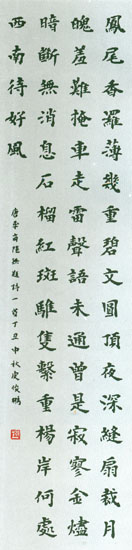 鳳尾香羅薄幾重碧文圓頂夜深縫扇裁月
魄羞難掩車走雷聲語未通曾是寂寥金燼
暗斷無消息石榴紅斑騅隻繫重楊岸何處
西南待好風
唐李商隱無題詩一首丁丑中秋俊鵬